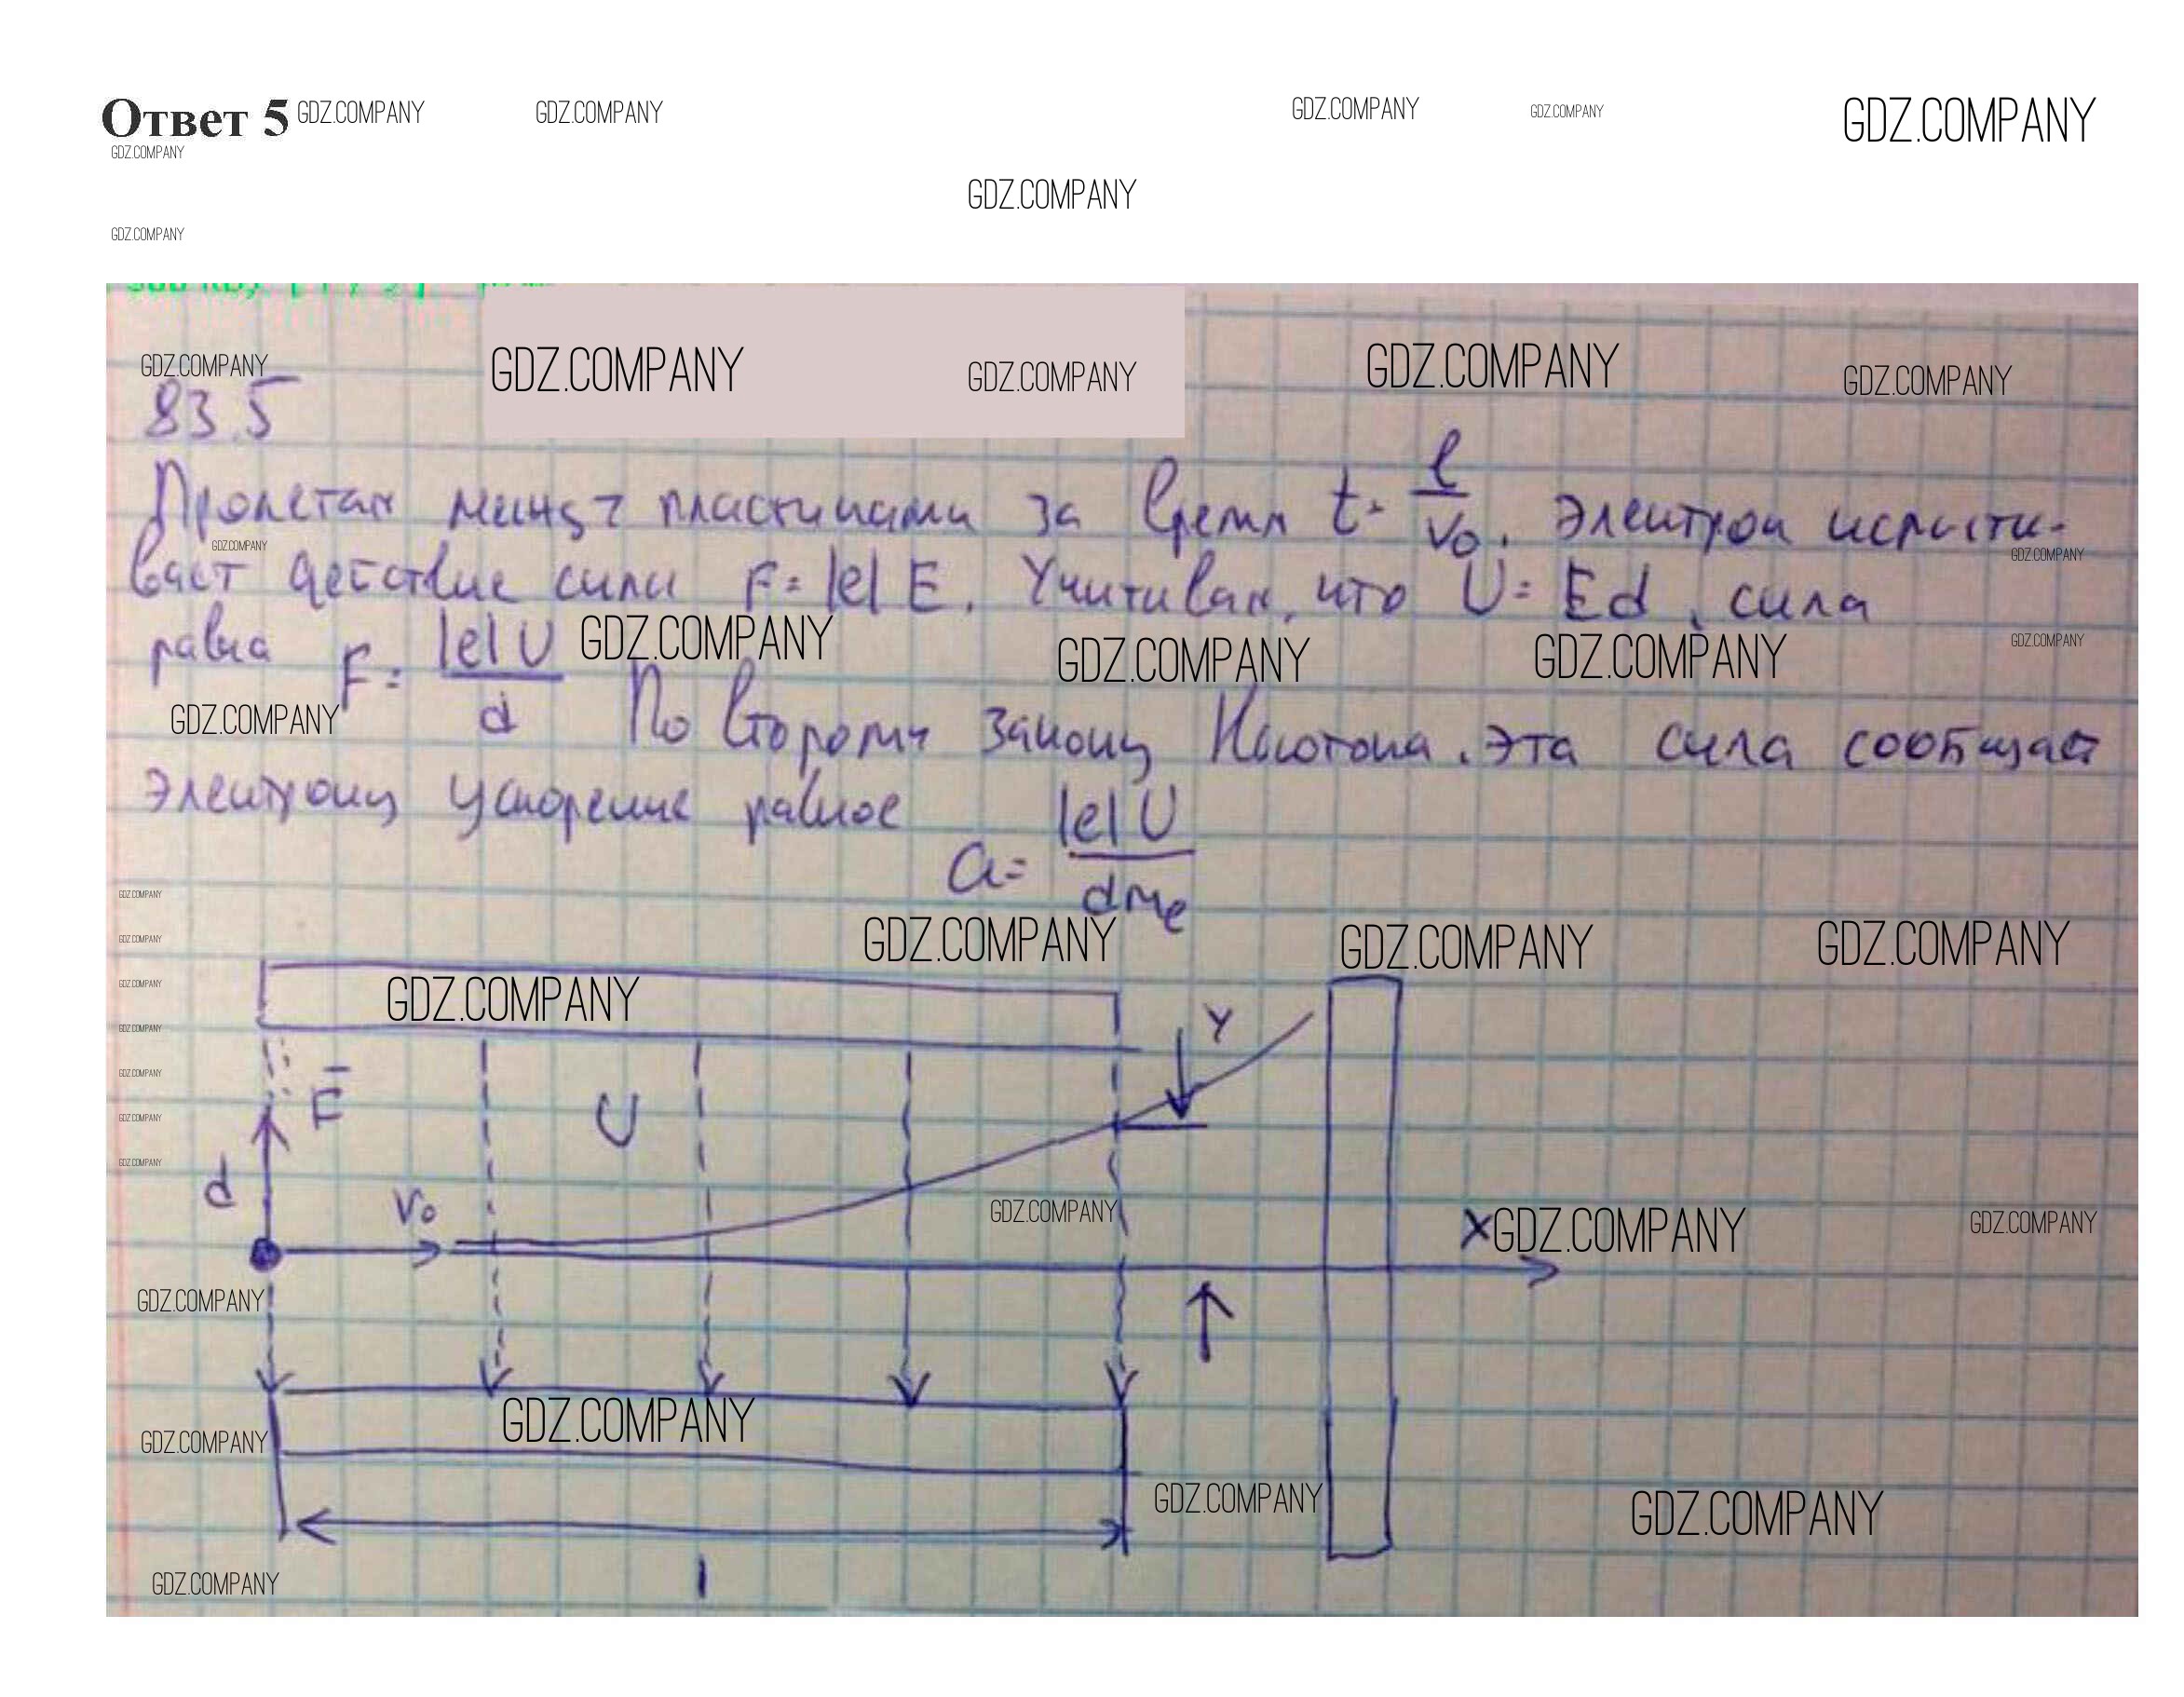 Ответ 5 GDZ.COMPANY GDZ.COMPANY GDZ.COMPANY GDZ.COMPANY GDZ.COMPANY
GDZ.COMPANY
GDZ.COMPANY
GDZ.COMPANY
GDZ.COMPANY GDZ.COMPANY GDZ.COMPANY GDZ.COMPANY GDZ.COMPANY
83.5
Пролетая между пластинами за время t = l/v₀. Электрон испыты-
GDZ.COMPANY GDZ.COMPANY
вает действие силы F = |e| E. Учитывая, что U = Ed, сила
равна F = |e| U / d GDZ.COMPANY GDZ.COMPANY GDZ.COMPANY GDZ.COMPANY
GDZ.COMPANY По второму закону Ньютона, эта сила сообщает
электрону ускорение равное
a = |e| U / dmₑ
GDZ.COMPANY
GDZ.COMPANY GDZ.COMPANY GDZ.COMPANY GDZ.COMPANY
GDZ.COMPANY GDZ.COMPANY
GDZ.COMPANY Y
GDZ.COMPANY
F U
GDZ.COMPANY
GDZ.COMPANY
d v₀ GDZ.COMPANY X GDZ.COMPANY GDZ.COMPANY
GDZ.COMPANY
GDZ.COMPANY GDZ.COMPANY
GDZ.COMPANY GDZ.COMPANY
l
GDZ.COMPANY